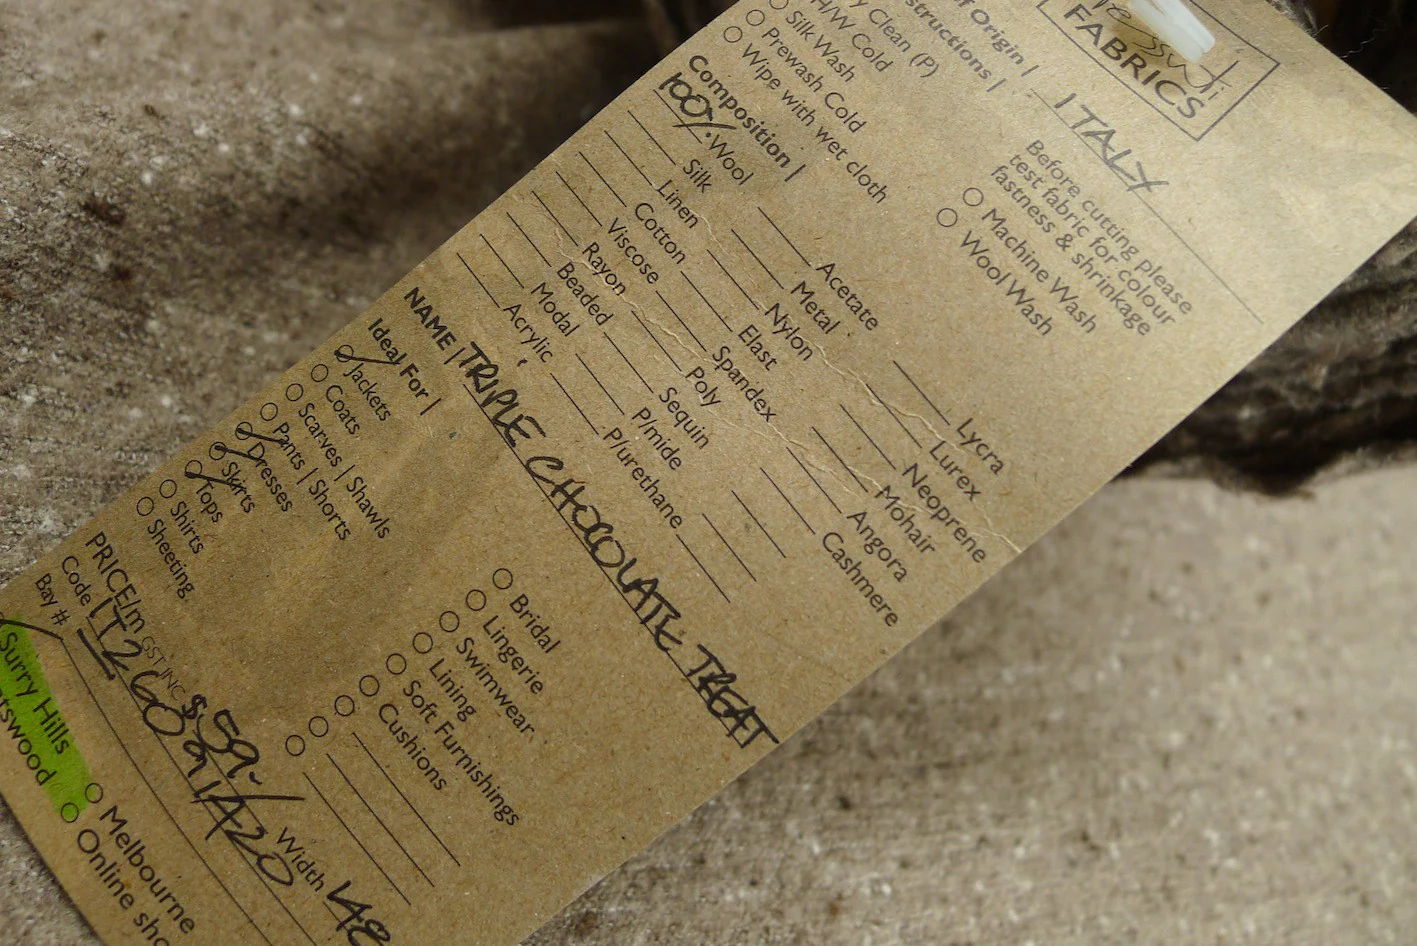 FABRICS
of Origin | ITALY
structions |
Before cutting please
test fabric for colour
fastness & shrinkage
Clean (P)
H/W Cold
Silk Wash
Prewash Cold
Wipe with wet cloth
Machine Wash
Wool Wash
Composition |
100% Wool
Silk
Linen
Cotton
Viscose
Rayon
Beaded
Modal
Acrylic
Acetate
Metal
Nylon
Elast
Spandex
Poly
Sequin
P/mide
P/urethane
Lycra
Lurex
Neoprene
Mohair
Angora
Cashmere
NAME | TRIPLE CHOCOLATE TREAT
Ideal For |
Jackets
Coats
Scarves | Shawls
Pants | Shorts
Dresses
Skirts
Tops
Shirts
Sheeting
Bridal
Lingerie
Swimwear
Lining
Soft Furnishings
Cushions
PRICE/m GST INC $59.-
Width 148
Code
Bay #
Surry Hills
Melbourne
Online